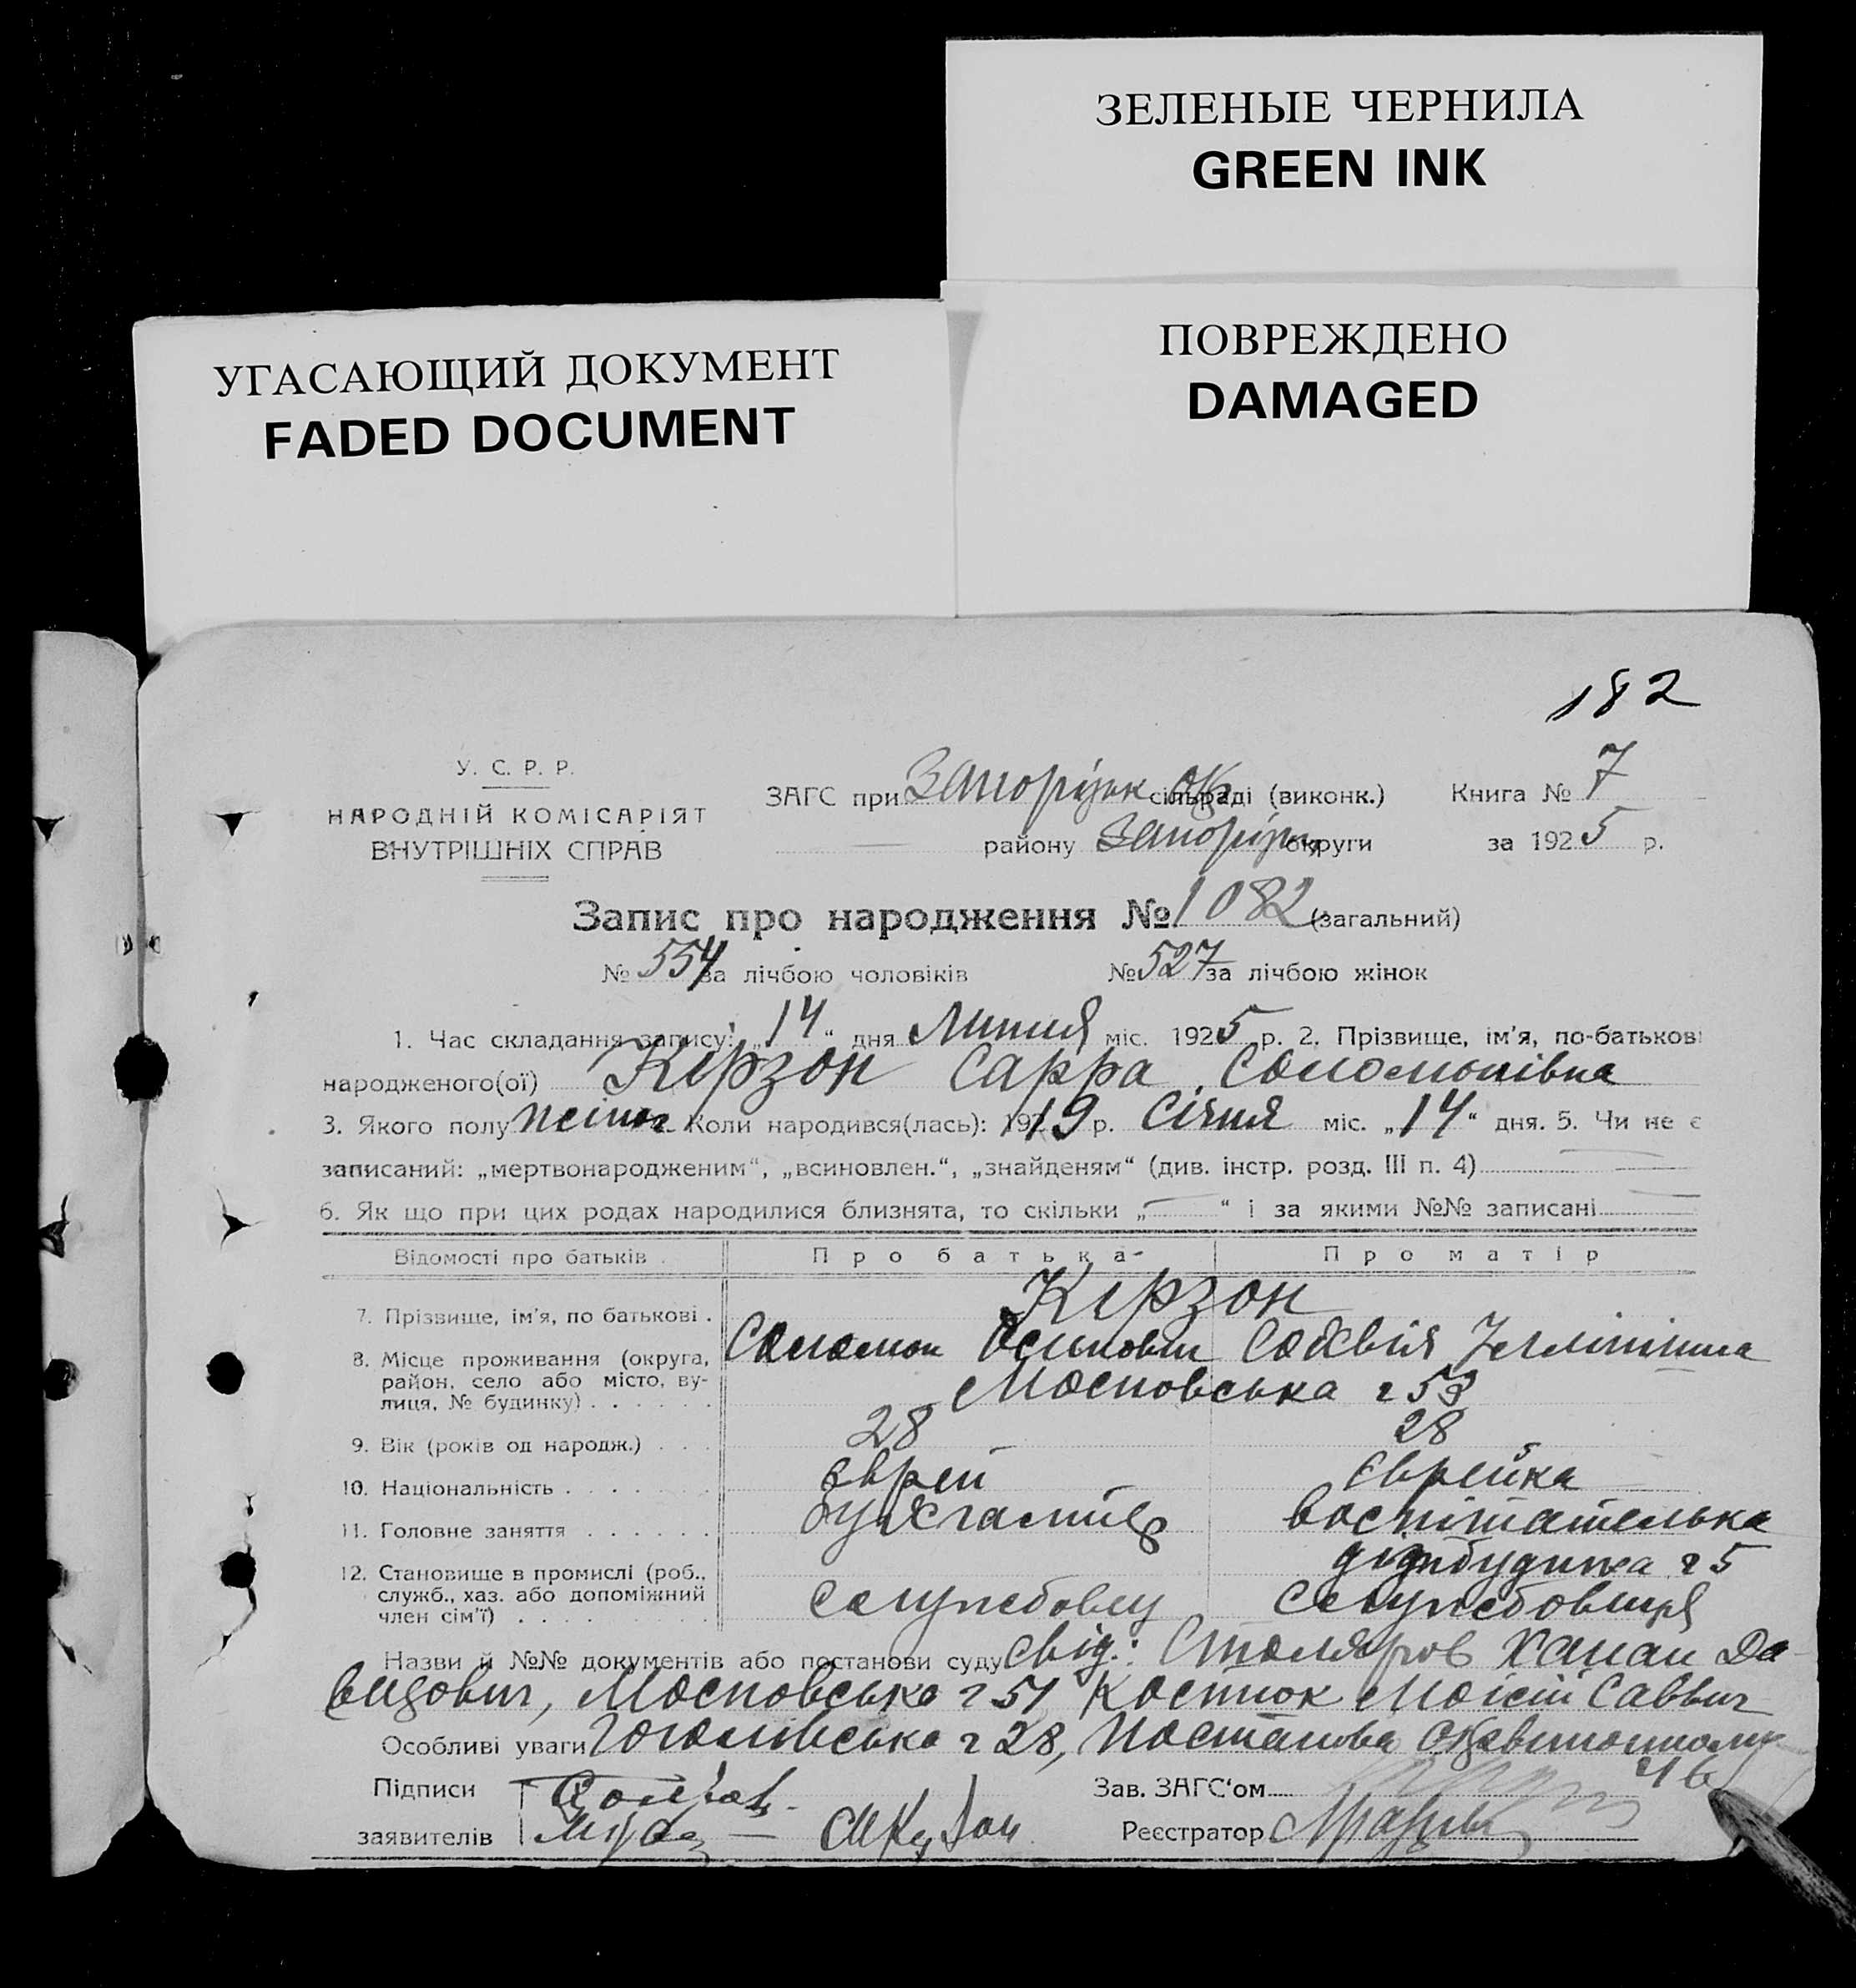 ЗЕЛЕНЫЕ ЧЕРНИЛА
GREEN INK
УГАСАЮЩИЙ ДОКУМЕНТ
FADED DOCUMENT
ПОВРЕЖДЕНО
DAMAGED
182
У. С. Р. Р.
НАРОДНІЙ КОМІСАРІЯТ
ВНУТРІШНІХ СПРАВ
ЗАГС при Запоріжк сільраді (виконк.) Книга № 7
району Запоріжк округи за 1925 р.
Запис про народження № 1082 (загальний)
№ 554 за лічбою чоловіків № 527 за лічбою жінок
1. Час складання запису: „14“ дня Липня міс. 1925 р. 2. Прізвище, ім'я, по-батькові
народженого(ої) Кірзон Сарра Соломонівна
3. Якого полу жіноч Коли народився(лась): 1919 р. Січня міс. „14“ дня. 5. Чи не є
записаний: „мертвонародженим“, „всиновлен.“, „знайденям“ (див. інстр. розд. III п. 4)
6. Як що при цих родах народилися близнята, то скільки „—“ і за якими №№ записані
Відомості про батьків Про батька Про матір
Кірзон
7. Прізвище, ім'я, по батькові .
Соломон Осипович
8. Місце проживання (округа,
район, село або місто, ву-
лиця, № будинку) . . . . . .
Московська г 53
9. Вік (років од народж.) . . . 28 28
10. Національність . . . . . . . Єврей Єврейка
11. Головне заняття . . . . . . Бухгалтер воспітателька
дитбудинка г 5
12. Становище в промислі (роб.,
служб., хаз. або допоміжний
член сім'ї) . . . . . . . . . .
службовец службовиця
Назви й №№ документів або постанови суду Свід.: Столяров Ханан Да-
видович, Московська г 51 Костюк Мойсій Саввич
Особливі уваги Гоголівська г 28, Постанова
Підписи Зав. ЗАГС'ом
заявителів Реєстратор